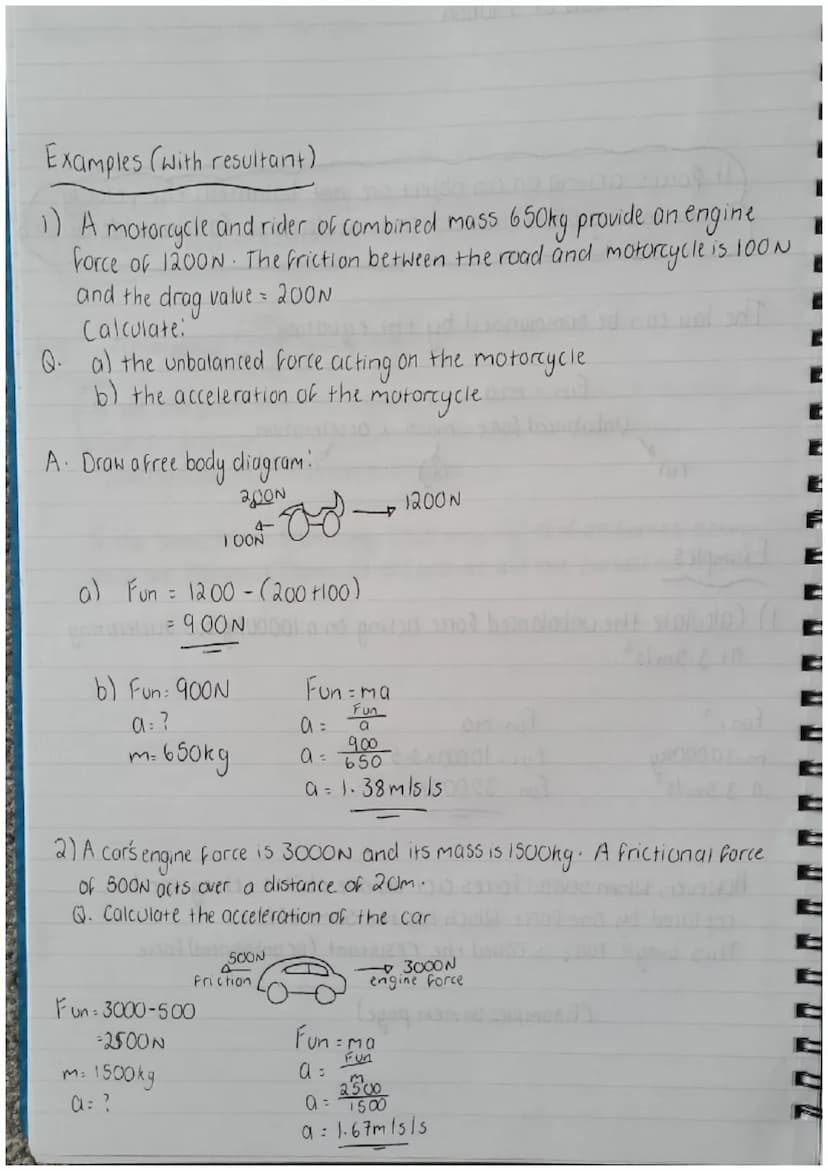 Examples (with resultant)
1) A motorcycle and rider of combined mass 650kg provide an engine
force of 1200N. The friction between the road and motorcycle is 100N
and the drag value = 200N
Calculate:
Q. a) the unbalanced force acting on the motorcycle
b) the acceleration of the motorcycle
A. Draw a free body diagram:
200N
1200N
100N
a) Fun = 1200 - (200+100)
= 900N
b) Fun: 900N
a: ?
m= 650kg
Fun = ma
a = Fun/a
a = 900/650
a = 1.38m/s/s
2) A car's engine force is 3000N and its mass is 1500kg. A frictional force
of 500N acts over a distance of 20m.
Q. Calculate the acceleration of the car
500N
Friction
3000N
engine force
Fun = 3000-500
=2500N
m= 1500kg
a= ?
Fun = ma
a = Fun/m
a = 2500/1500
a = 1.67m/s/s